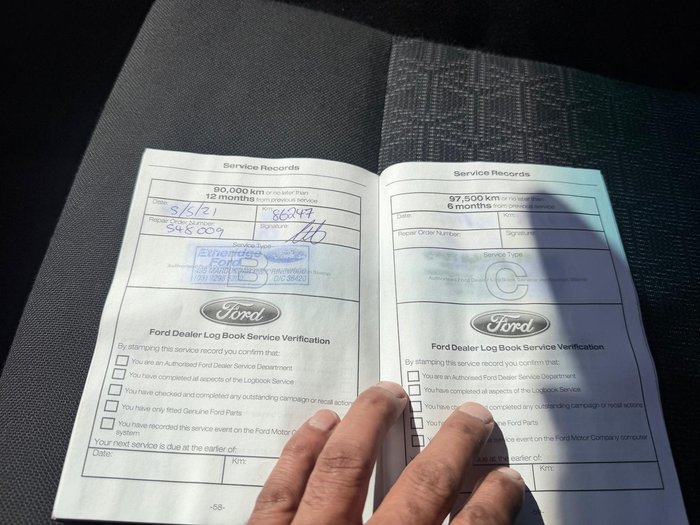 Service Records
90,000 km or no later than
12 months from previous service
Date: 5/5/21
Km: 86247
Repair Order Number: 548009
Signature:
Service Type
Etheridge
Ford
B
D/C 36420
Ford
Ford Dealer Log Book Service Verification
By stamping this service record you confirm that:
You are an Authorised Ford Dealer Service Department
You have completed all aspects of the Logbook Service
You have checked and completed any outstanding campaign or recall actions
You have only fitted Genuine Ford Parts
You have recorded this service event on the Ford Motor
system
Your next service is due at the earlier of:
Date:
Km:
-58-
Service Records
97,500 km or no later than
6 months from previous service
Date:
Km:
Repair Order Number:
Signature:
Service Type
C
Ford
Ford Dealer Log Book Service Verification
By stamping this service record you confirm that:
You are an Authorised Ford Dealer Service Department
You have completed all aspects of the Logbook Service
You have completed any outstanding campaign or recall actions
Ford Parts
service event on the Ford Motor Company computer
due at the earlier of:
Km: